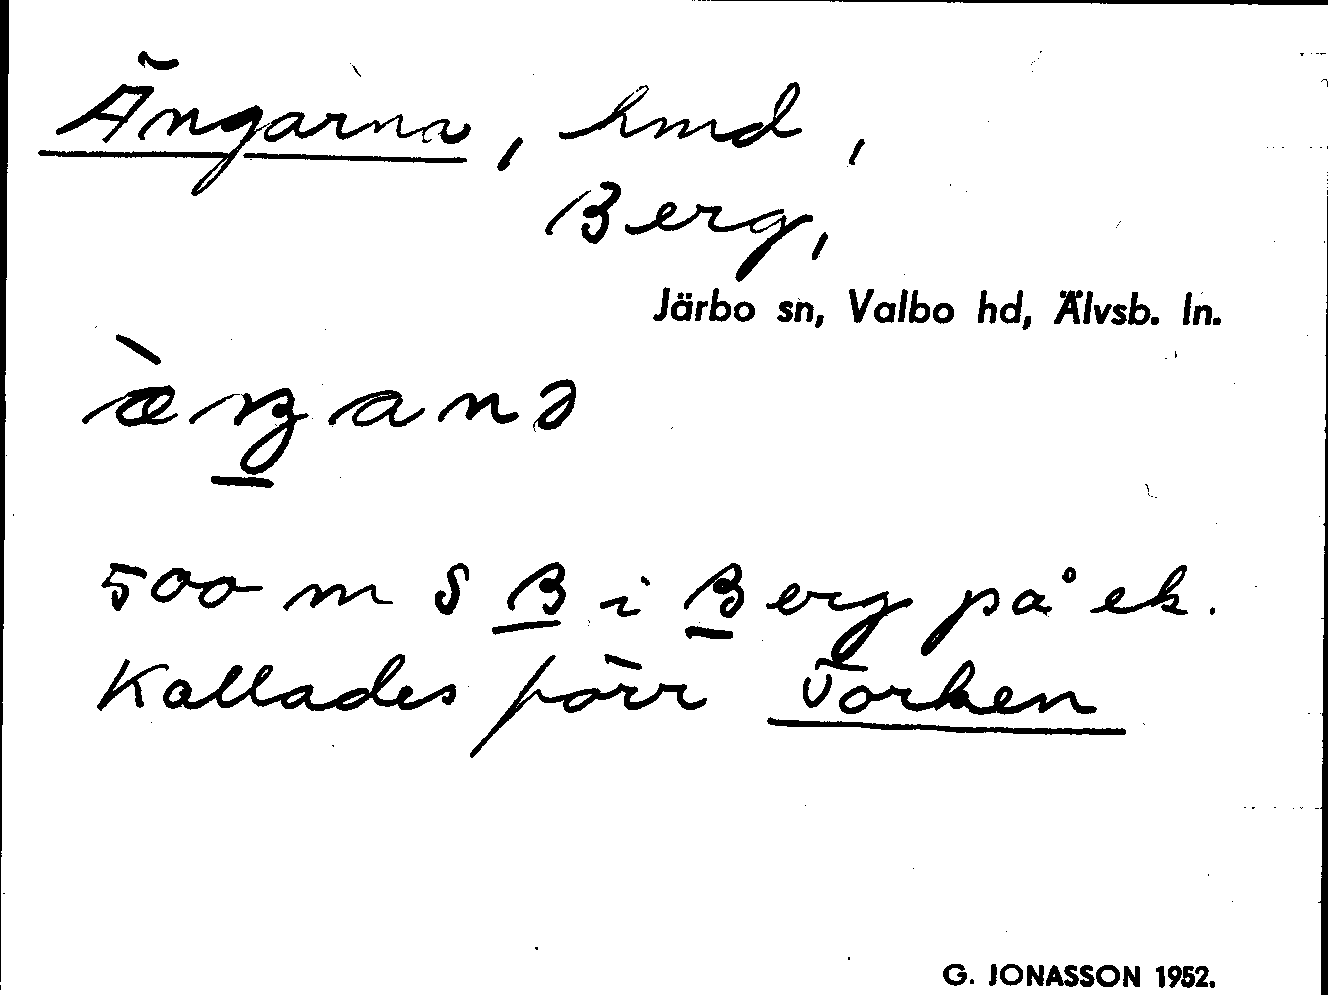 Ängarna, hmd,
Berg,
Järbo sn, Valbo hd, Älvsb. ln.
500 m S B i Berg på ek.
Kallades förr Torken
G. JONASSON 1952.